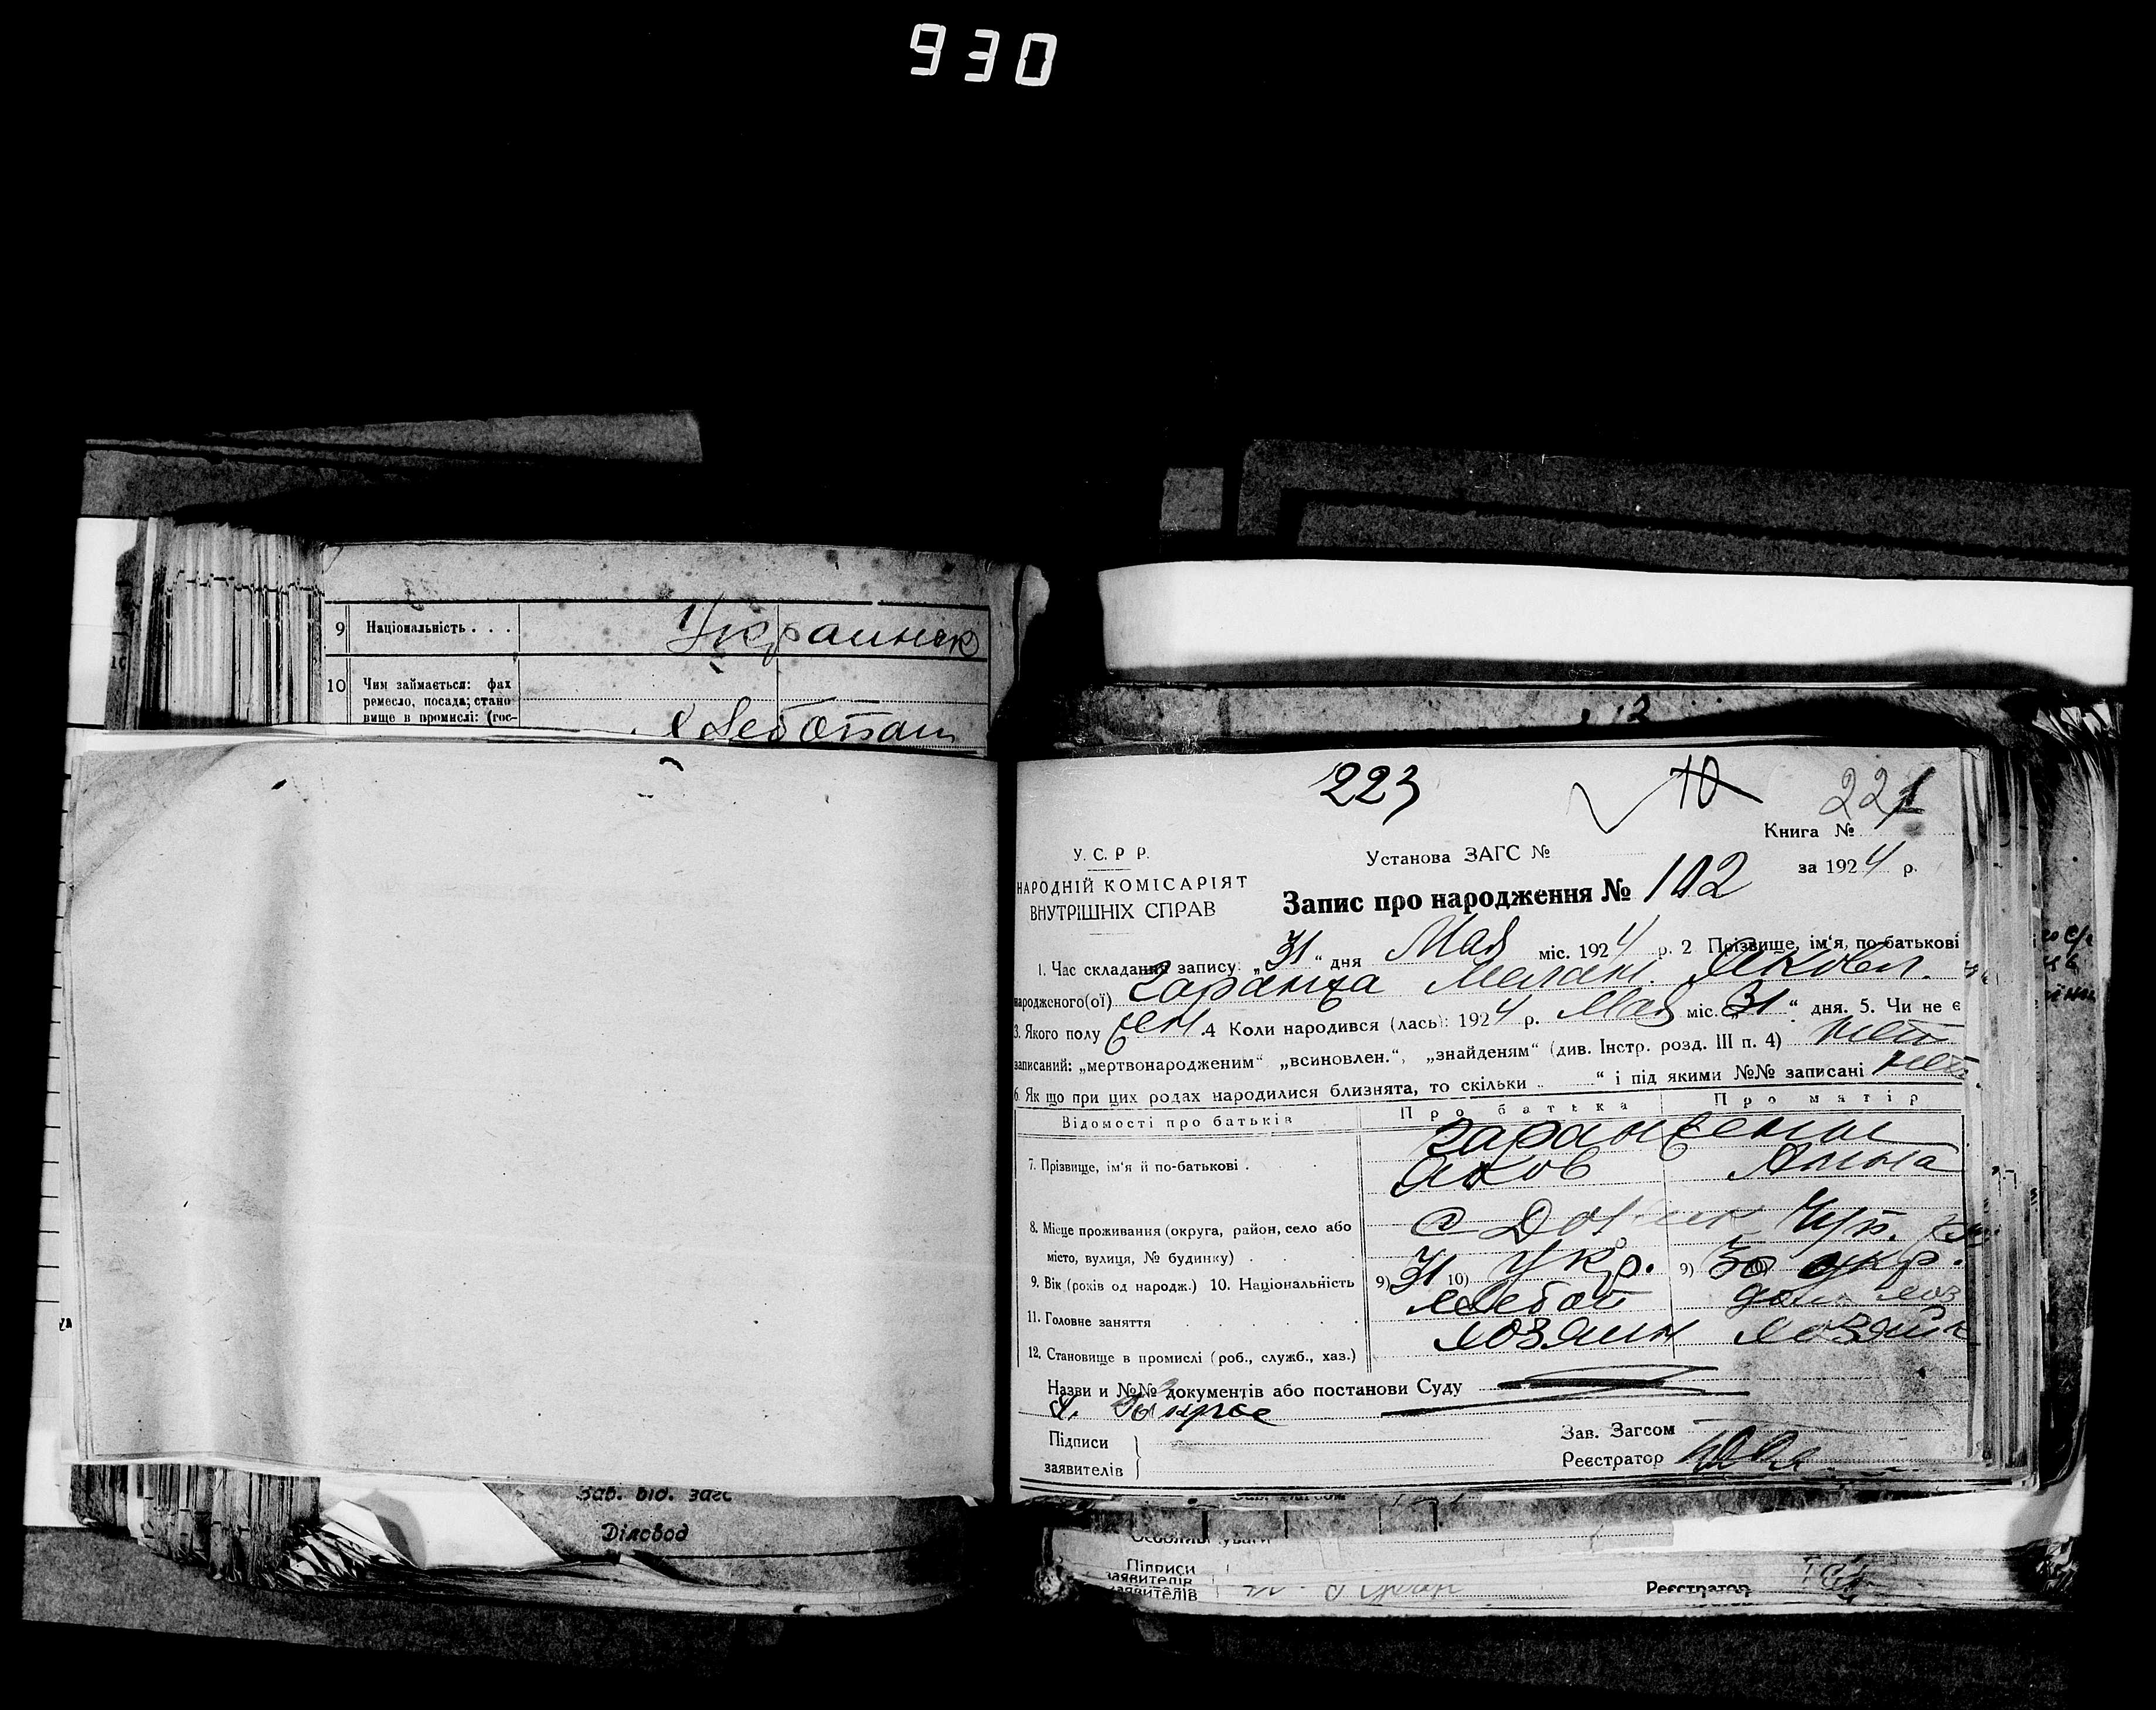 930
9 Національність . . . Украинск
10 Чим займається: фах
ремесло, посада; стано
вище в промислі: (гос-
Хлебопаш
Зав. від. загс
Діловод
223 10 221
Книга №
У. С. Р. Р.
Установа ЗАГС №
за 1924 р.
НАРОДНІЙ КОМІСАРІЯТ
ВНУТРІШНІХ СПРАВ
Запис про народження № 102
1. Час складання запису: „31“ дня Мая міс. 1924 р. 2 Прізвище, ім'я, по-батькові
народженого(ої) Гаранжа Мелан. Яковл.
3. Якого полу жен. 4 Коли народився (лась): 1924 р. Мая міс. „31“ дня. 5. Чи не є
записаний: „мертвонародженим“ „всиновлен.“, „знайденям“ (див. Інстр. розд. III п. 4) нет
6. Як що при цих родах народилися близнята, то скільки .. “ і під якими №№ записані нет.
Відомості про батьків Про батька Про матір
7. Прізвище, ім'я й по-батькові . Яков Анна
8. Місце проживання (округа, район, село або
місто, вулиця, № будинку) . . с
9. Вік (років од народж.) 10. Національність 9) 31 10) Укр. 9) 30 укр.
11. Головне заняття . . . . . Хлебоп дом хоз
12. Становище в промислі (роб., служб., хаз.) хозяин хозяйк
Назви и №№ документів або постанови Суду
Зав. Загсом
Підписи
заявителів
Реєстратор
Підписи
заявителів
заявителів
Реєстратор